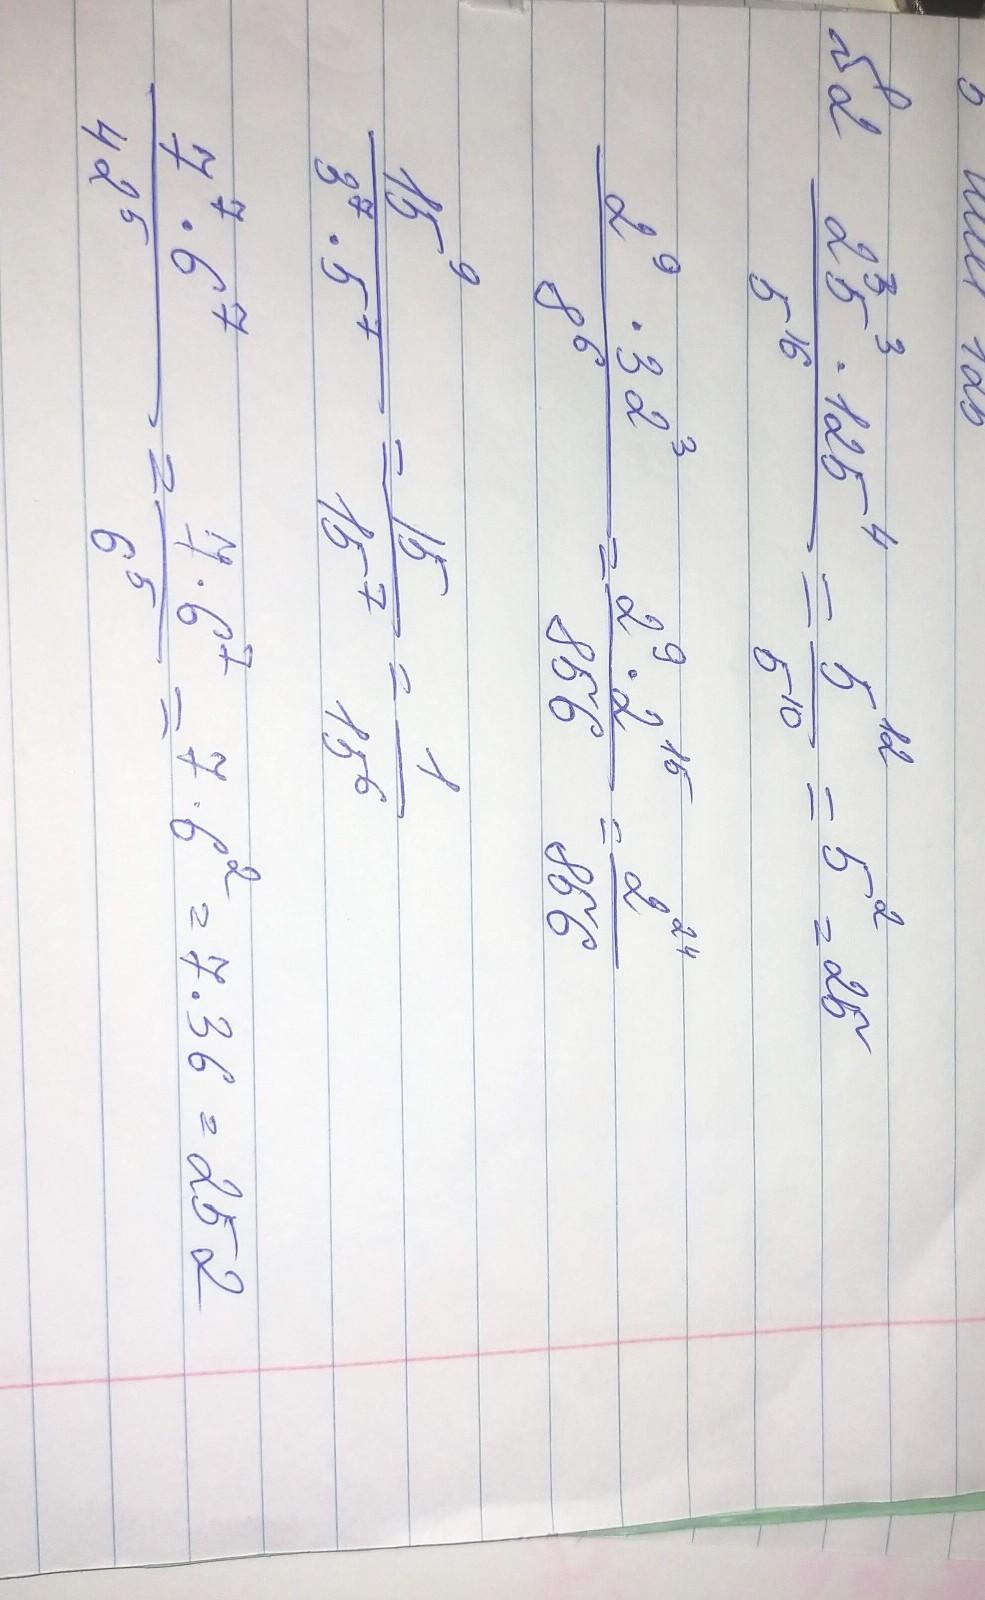 №2 25³ · 125⁴ / 5¹⁶ = 5¹² / 5¹⁰ = 5² = 25
2⁹ · 32³ / 8⁶ = 2⁹ · 2¹⁵ / 856 = 2²⁴ / 856
15⁹ / 3⁷ · 5⁷ = 15 / 15⁷ = 1 / 15⁶
7⁷ · 6⁷ / 42⁵ = 7 · 6⁷ / 6⁵ = 7 · 6² = 7 · 36 = 252